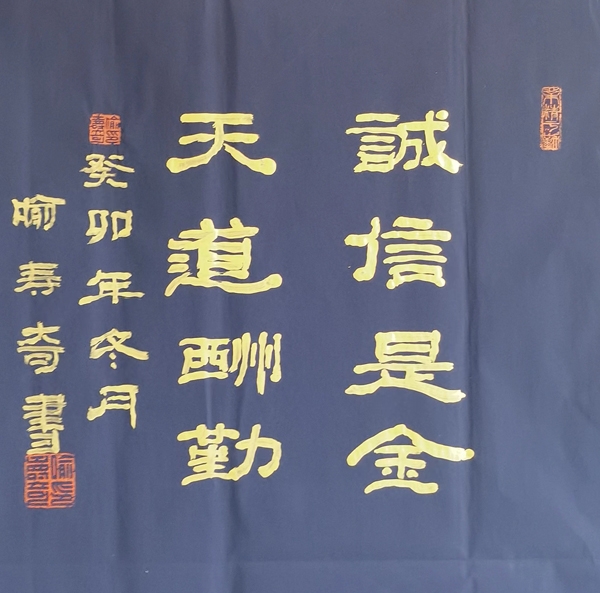 誠信是金
天道酬勤
癸卯年冬月
喻寿奇書